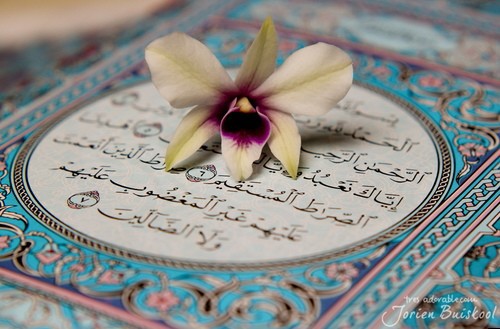 بِسْمِ
الْحَمْدُ لِلَّهِ
الرَّحْمَٰنِ الرَّحِيمِ
إِيَّاكَ نَعْبُدُ
الصِّرَاطَ الْمُسْتَقِيمَ ٦ صِرَاطَ الَّذِينَ أَنْعَمْتَ
عَلَيْهِمْ غَيْرِ الْمَغْضُوبِ عَلَيْهِمْ
وَلَا الضَّالِّينَ ٧
tres-adorable.com
Jorien Buiskool